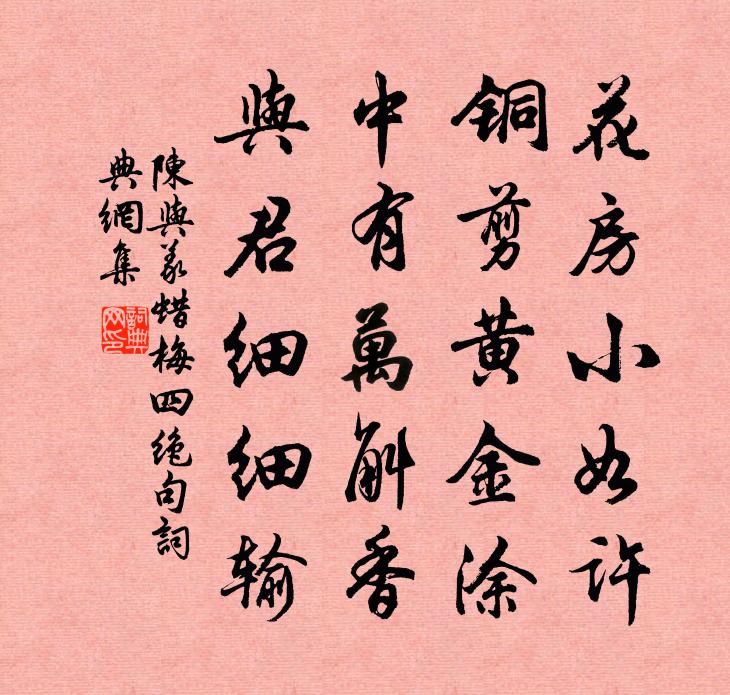 花房小如许
铜剪黄金涂
中有萬斛香
與君细细输
陳與義蜡梅四绝句詞
典網集
詞典网印